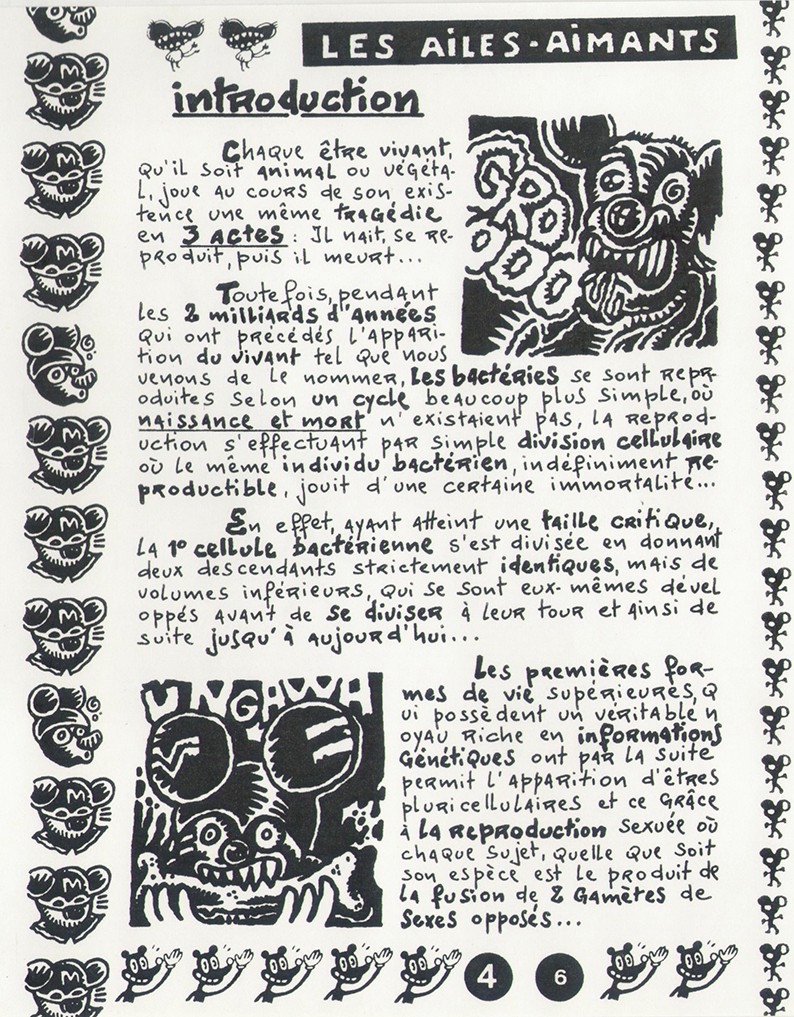 LES AiLES-AiMANTS
introduction
Chaque être vivant,
qu'il soit animal ou végéta-
l, joue au cours de son exis-
tence une même tragédie
en 3 actes : Il nait, se re-
produit, puis il meurt...
Toutefois, pendant
les 2 milliards d'années
qui ont précédés l'appari-
tion du vivant tel que nous
venons de le nommer, les bactéries se sont repr-
oduites selon un cycle beaucoup plus simple, où
naissance et mort n'existaient pas, la reprod-
uction s'effectuant par simple division cellulaire
où le même individu bactérien, indéfiniment re-
productible, jouit d'une certaine immortalité...
En effet, ayant atteint une taille critique,
la 1° cellule bactérienne s'est divisée en donnant
deux descendants strictement identiques, mais de
volumes inférieurs, qui se sont eux-mêmes dével
oppés avant de se diviser à leur tour et ainsi de
suite jusqu'à aujourd'hui...
UNGAWA
Les premières for-
mes de vie supérieures, q
ui possèdent un véritable n
oyau riche en informations
génétiques ont par la suite
permit l'apparition d'êtres
pluricellulaires et ce grâce
à la reproduction sexuée où
chaque sujet, quelle que soit
son espèce est le produit de
la fusion de 2 gamètes de
sexes opposés...
4 6